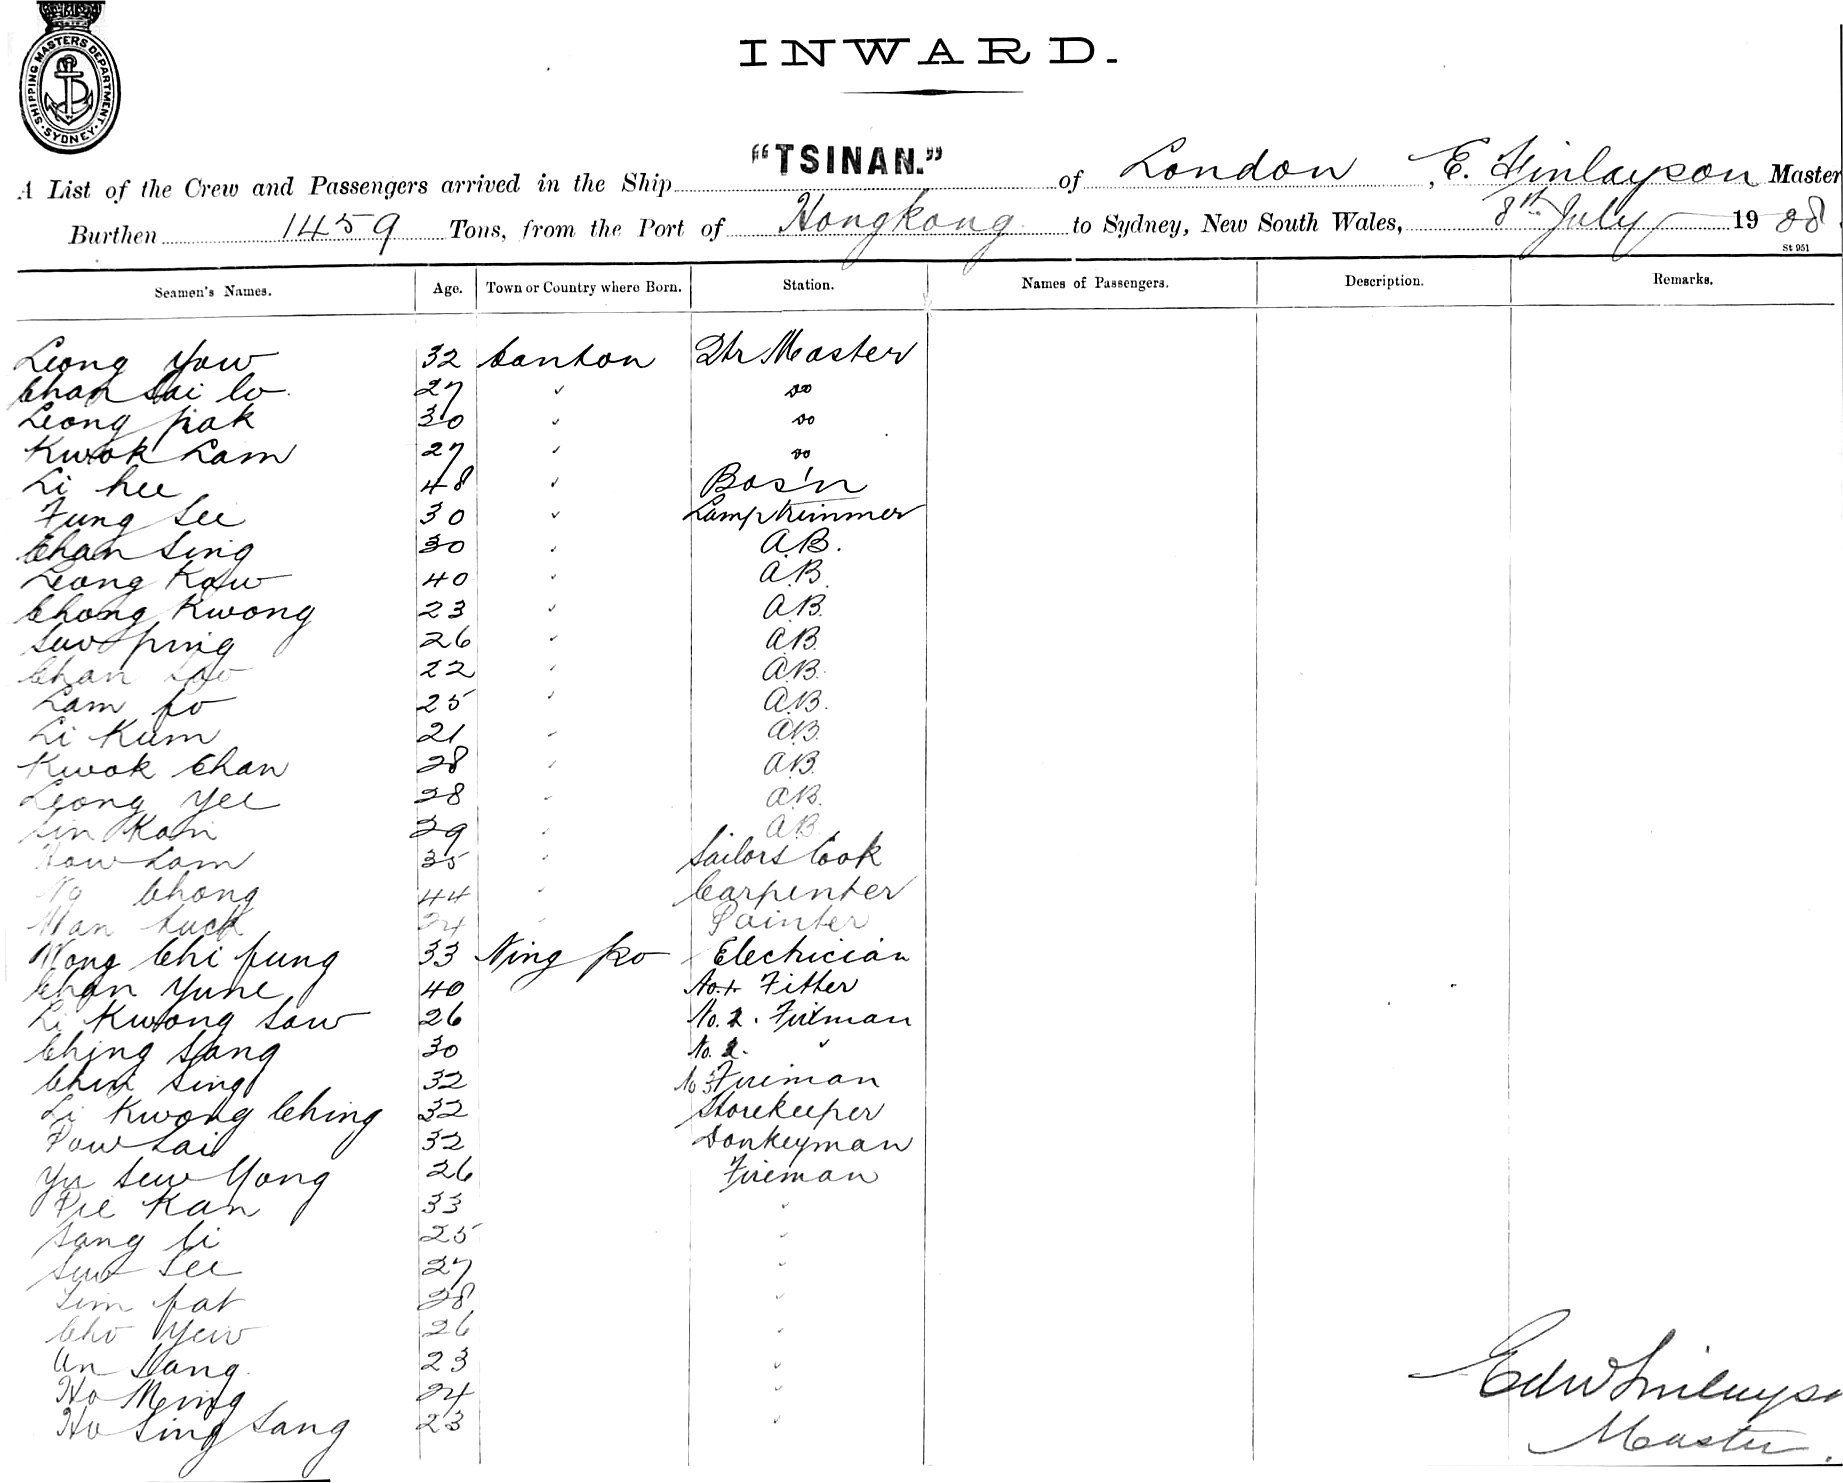 SHIPPING MASTERS DEPARTMENT · SYDNEY ·
INWARD.
A List of the Crew and Passengers arrived in the Ship "TSINAN." of London, E. Finlayson Master
Burthen 1459 Tons, from the Port of Hongkong to Sydney, New South Wales, 8th July 1908
St 951
Seamen's Names. Age. Town or Country where Born. Station. Names of Passengers. Description. Remarks.
Leong Yow 32 Canton Qtr Master
Chan Sai Co 27 ✓ do
Leong pak 30 ✓ do
Kwok Lam 27 ✓ do
Li hee 48 ✓ Bos'n
Fung See 30 ✓ Lamptrimmer
Chan Sing 30 ✓ A.B.
Leong Kow 40 ✓ A.B.
Chong Kwong 23 ✓ A.B.
Suw ping 26 ✓ A.B.
Chan 22 ✓ A.B.
Lam fo 25 ✓ A.B.
Li Kum 21 ✓ A.B.
Kwok Chan 28 ✓ A.B.
Leong Yee 28 ✓ A.B.
Sin Kan 29 ✓ A.B.
How Lam 35 ✓ Sailors Cook
Ng Chong 44 ✓ Carpenter
Wan Suck 24 ✓ Painter
Wong Chi fung 33 Ning po Electrician
Chan Yune 40 No. 1 Fitter
Li Kwong Sow 26 No. 2. Fireman
Ching Sang 30 No. 2. ✓
Chin Sing 32 No 3 Fireman
Li Kwong Ching 32 Storekeeper
Pow Sai 32 Donkeyman
Yu Suw Yong 26 Fireman
Pie Kan 33 ✓
Sang Ci 25 ✓
Suw See 27 ✓
Sim fat 28 ✓
Cho Yew 26 ✓
Un Sang 23 ✓
Ho Ming 24 ✓
Ho Sing Sang 23 ✓
Edw Finlayso
Master.